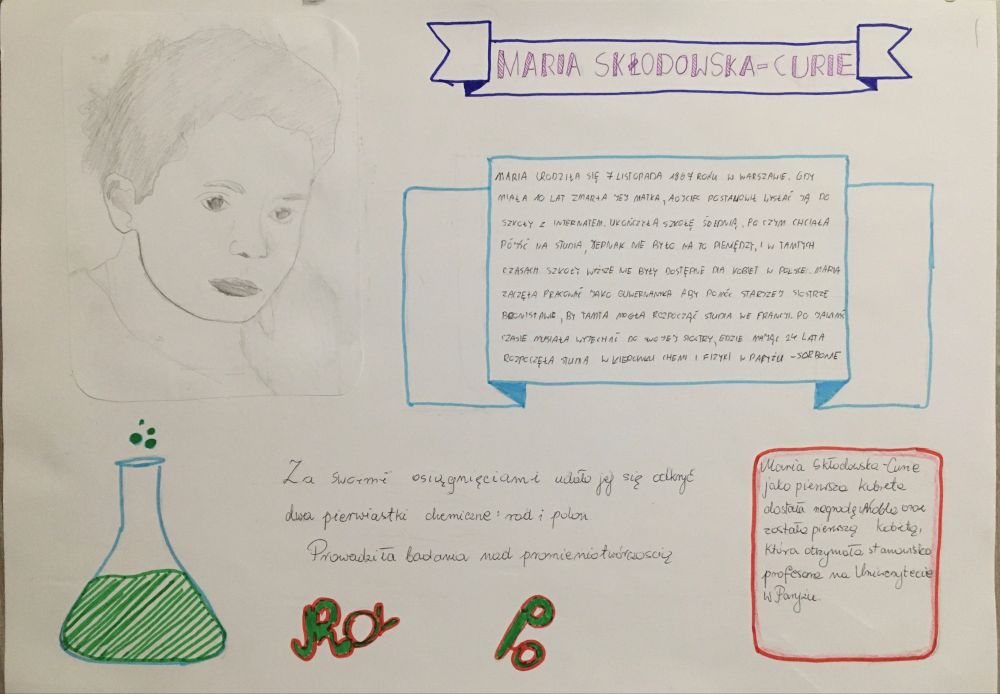 MARIA SKŁODOWSKA-CURIE
MARIA URODZIŁA SIĘ 7 LISTOPADA 1867 ROKU W WARSZAWIE. GDY
MIAŁA 10 LAT ZMARŁA JEJ MATKA, A OJCIEC POSTANOWIŁ WYSŁAĆ JĄ DO
SZKOŁY Z INTERNATEM. UKOŃCZYŁA SZKOŁĘ ŚREDNIĄ, PO CZYM CHCIAŁA
PÓJŚĆ NA STUDIA, JEDNAK NIE BYŁO NA TO PIENIĘDZY, I W TAMTYCH
CZASACH SZKOŁY WYŻSZE NIE BYŁY DOSTĘPNE DLA KOBIET W POLSCE. MARIA
ZACZĘŁA PRACOWAĆ JAKO GUWERNANTKA ABY POMÓC STARSZEJ SIOSTRZE
BRONISŁAWIE, BY TAMTA MOGŁA ROZPOCZĄĆ STUDIA WE FRANCJI. PO JAKIMŚ
CZASIE MUSIAŁA WYJECHAĆ DO SWOJEJ SIOSTRY, GDZIE MAJĄC 24 LATA
ROZPOCZĘŁA STUDIA W KIERUNKU CHEMII I FIZYKI W PARYŻU - SORBONIE
Za swoimi osiągnięciami udało jej się odkryć
dwa pierwiastki chemiczne: rad i polon
Prowadziła badania nad promieniotwórczością
Maria Skłodowska-Curie
jako pierwsza kobieta
dostała nagrodę Nobla oraz
została pierwszą kobietą,
która otrzymała stanowisko
profesora na Uniwersytecie
w Paryżu.
Ra Po